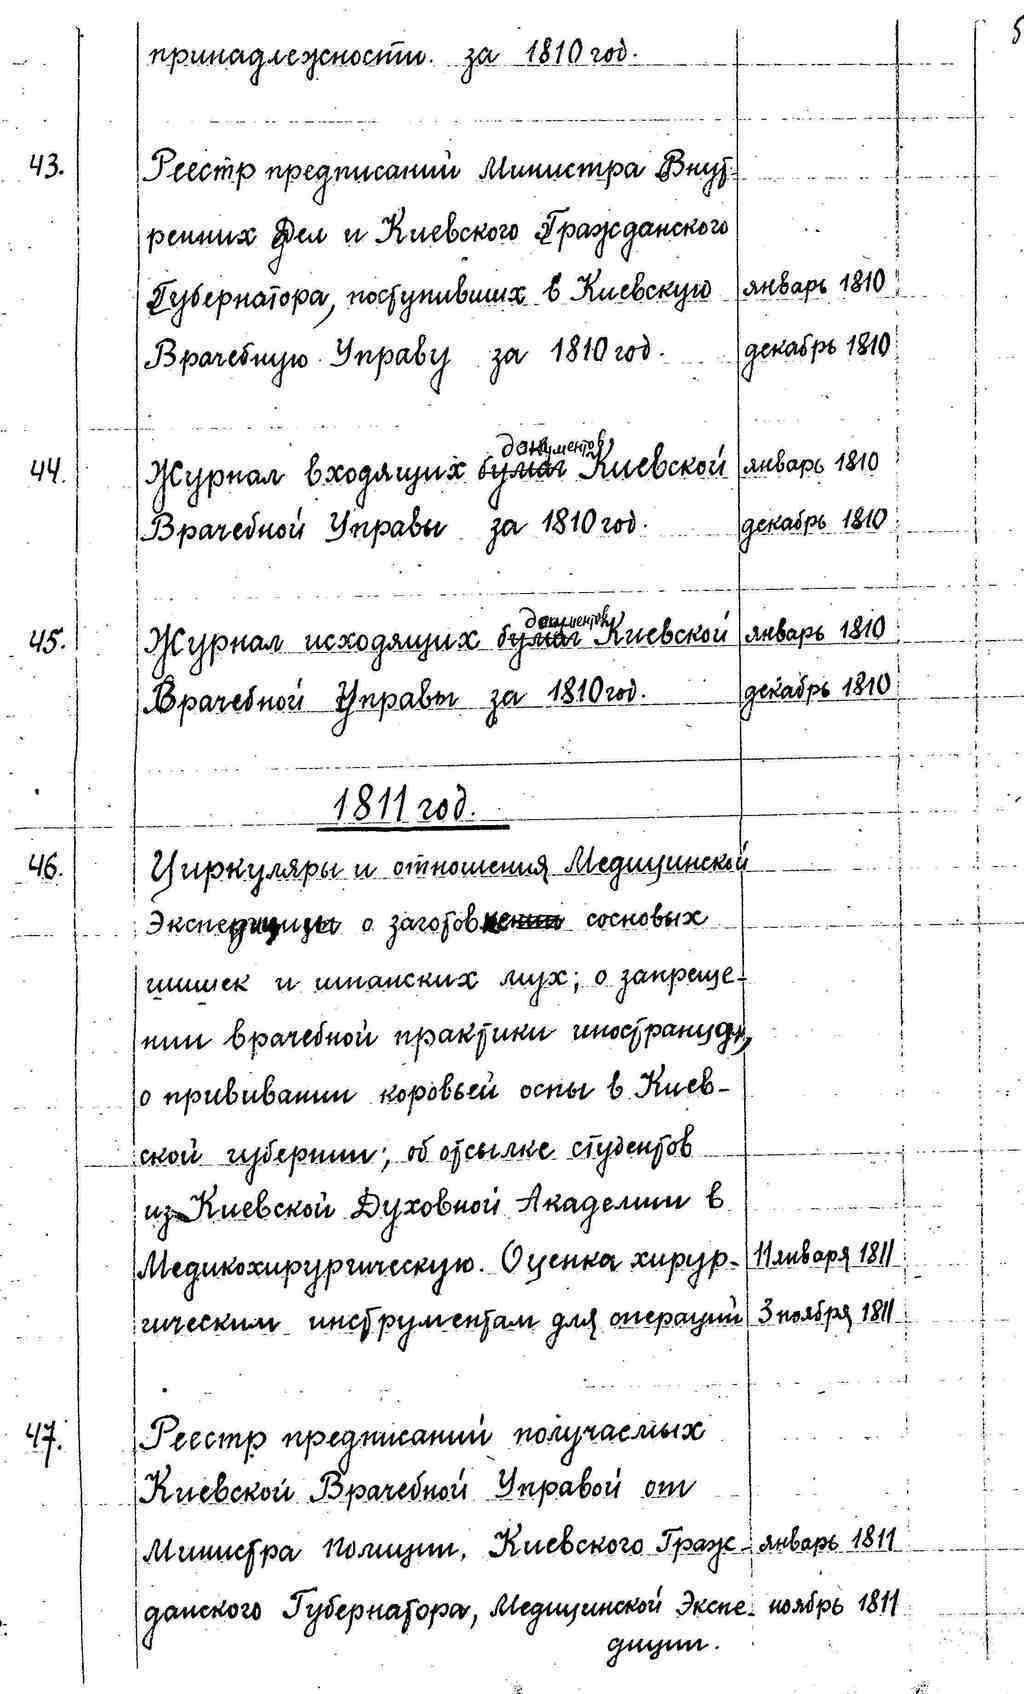 5
принадлежности. за 1810 год.
43. Реестр предписаний Министра Внут-
ренних Дел и Киевского Гражданского
Губернатора, поступивших в Киевскую январь 1810
Врачебную Управу за 1810 год. декабрь 1810
документов
44. Журнал входящих бумаг Киевской январь 1810
Врачебной Управы за 1810 год. декабрь 1810
документов
45. Журнал исходящих бумаг Киевской январь 1810
Врачебной Управы за 1810 год. декабрь 1810
1811 год.
46. Циркуляры и отношения Медицинской
о сосновых
шишек и шпанских мух; о запреще-
нии врачебной практики иностранцам,
о прививании коровьей оспы в Киев-
ской губернии; об отсылке студентов
из Киевской Духовной Академии в
Медикохирургическую. Оценка хирур- 11 января 1811
гическим инструментам для операций 3 ноября 1811
47. Реестр предписаний получаемых
Киевской Врачебной Управой от
Министра Полиции, Киевского Граж- январь 1811
данского Губернатора, Медицинской Экспе- ноябрь 1811
диции.